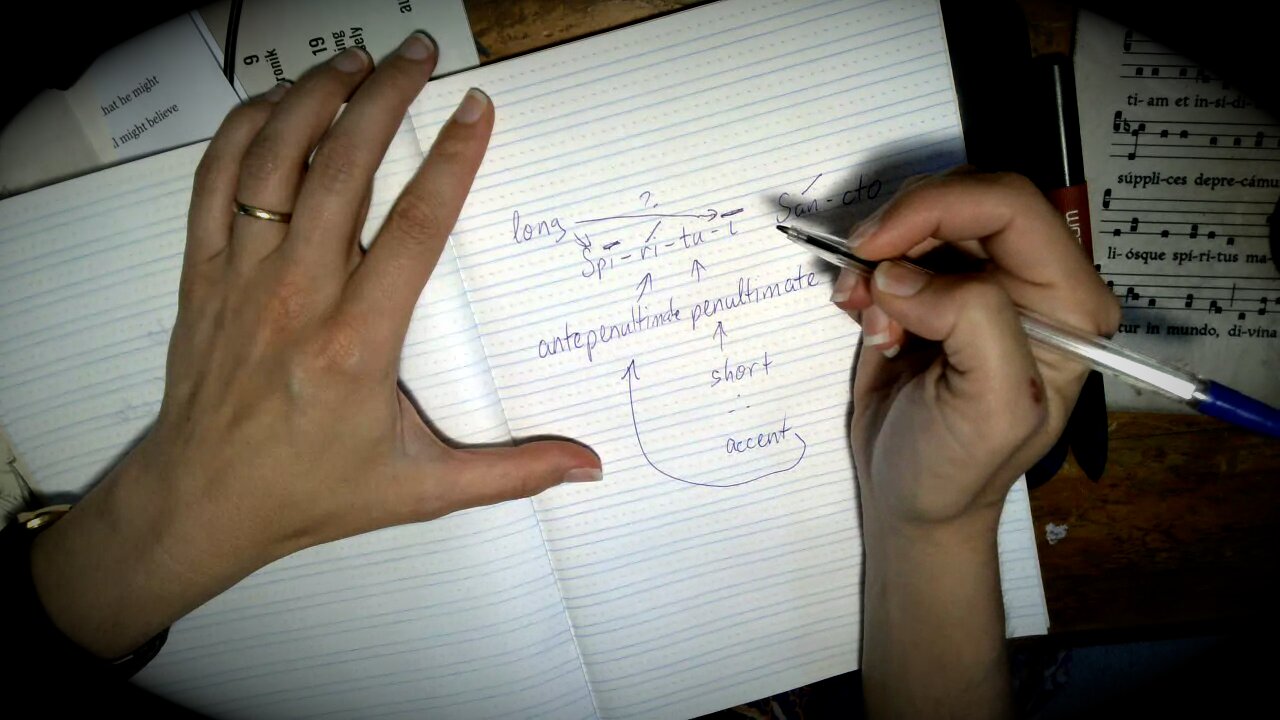 hat he might
d might believe
9
ronik
19
ing
ely
al
long ? Sán-cto
Spī-rí-tu-ī
antepenultimate penultimate
short
∴
accent
ti-am et in-sí-di-
súppli-ces depre-cámu
li-ósque spí-ri-tus ma-
tur in mundo, di-vína
um